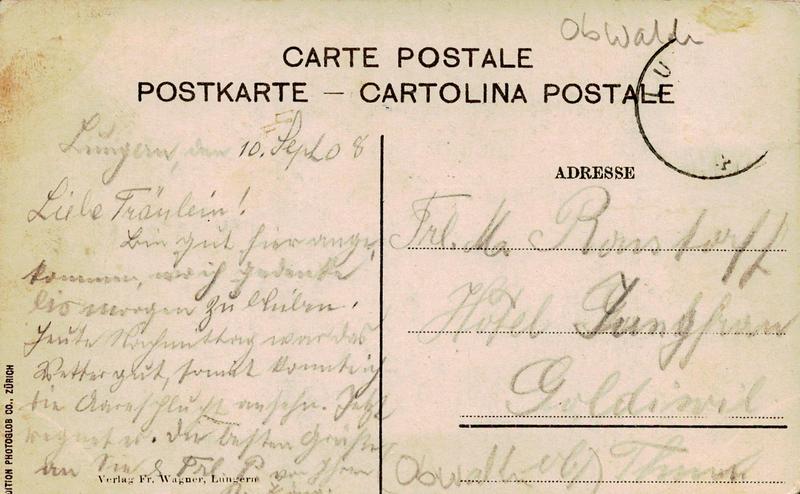 Obwalden
CARTE POSTALE
POSTKARTE – CARTOLINA POSTALE
LU
Lungern, den 10. Sept. 08
ADRESSE
Liebe Fräulein!
Bin gut hier ange-
kommen, wo ich gedenke
bis morgen zu bleiben.
Heute Nachmittag war das
Wetter gut, somit konnte ich
die Aareschlucht ansehn. Jetzt
regnet es. Die besten Grüsse
an Sie & Frl. P. von Ihrem
Frl. M. Ronstorff
Hôtel Jungfrau
Goldiwil
ob/ Thun
Verlag Fr. Wagner, Lungern
DITION PHOTOGLOB CO., ZÜRICH